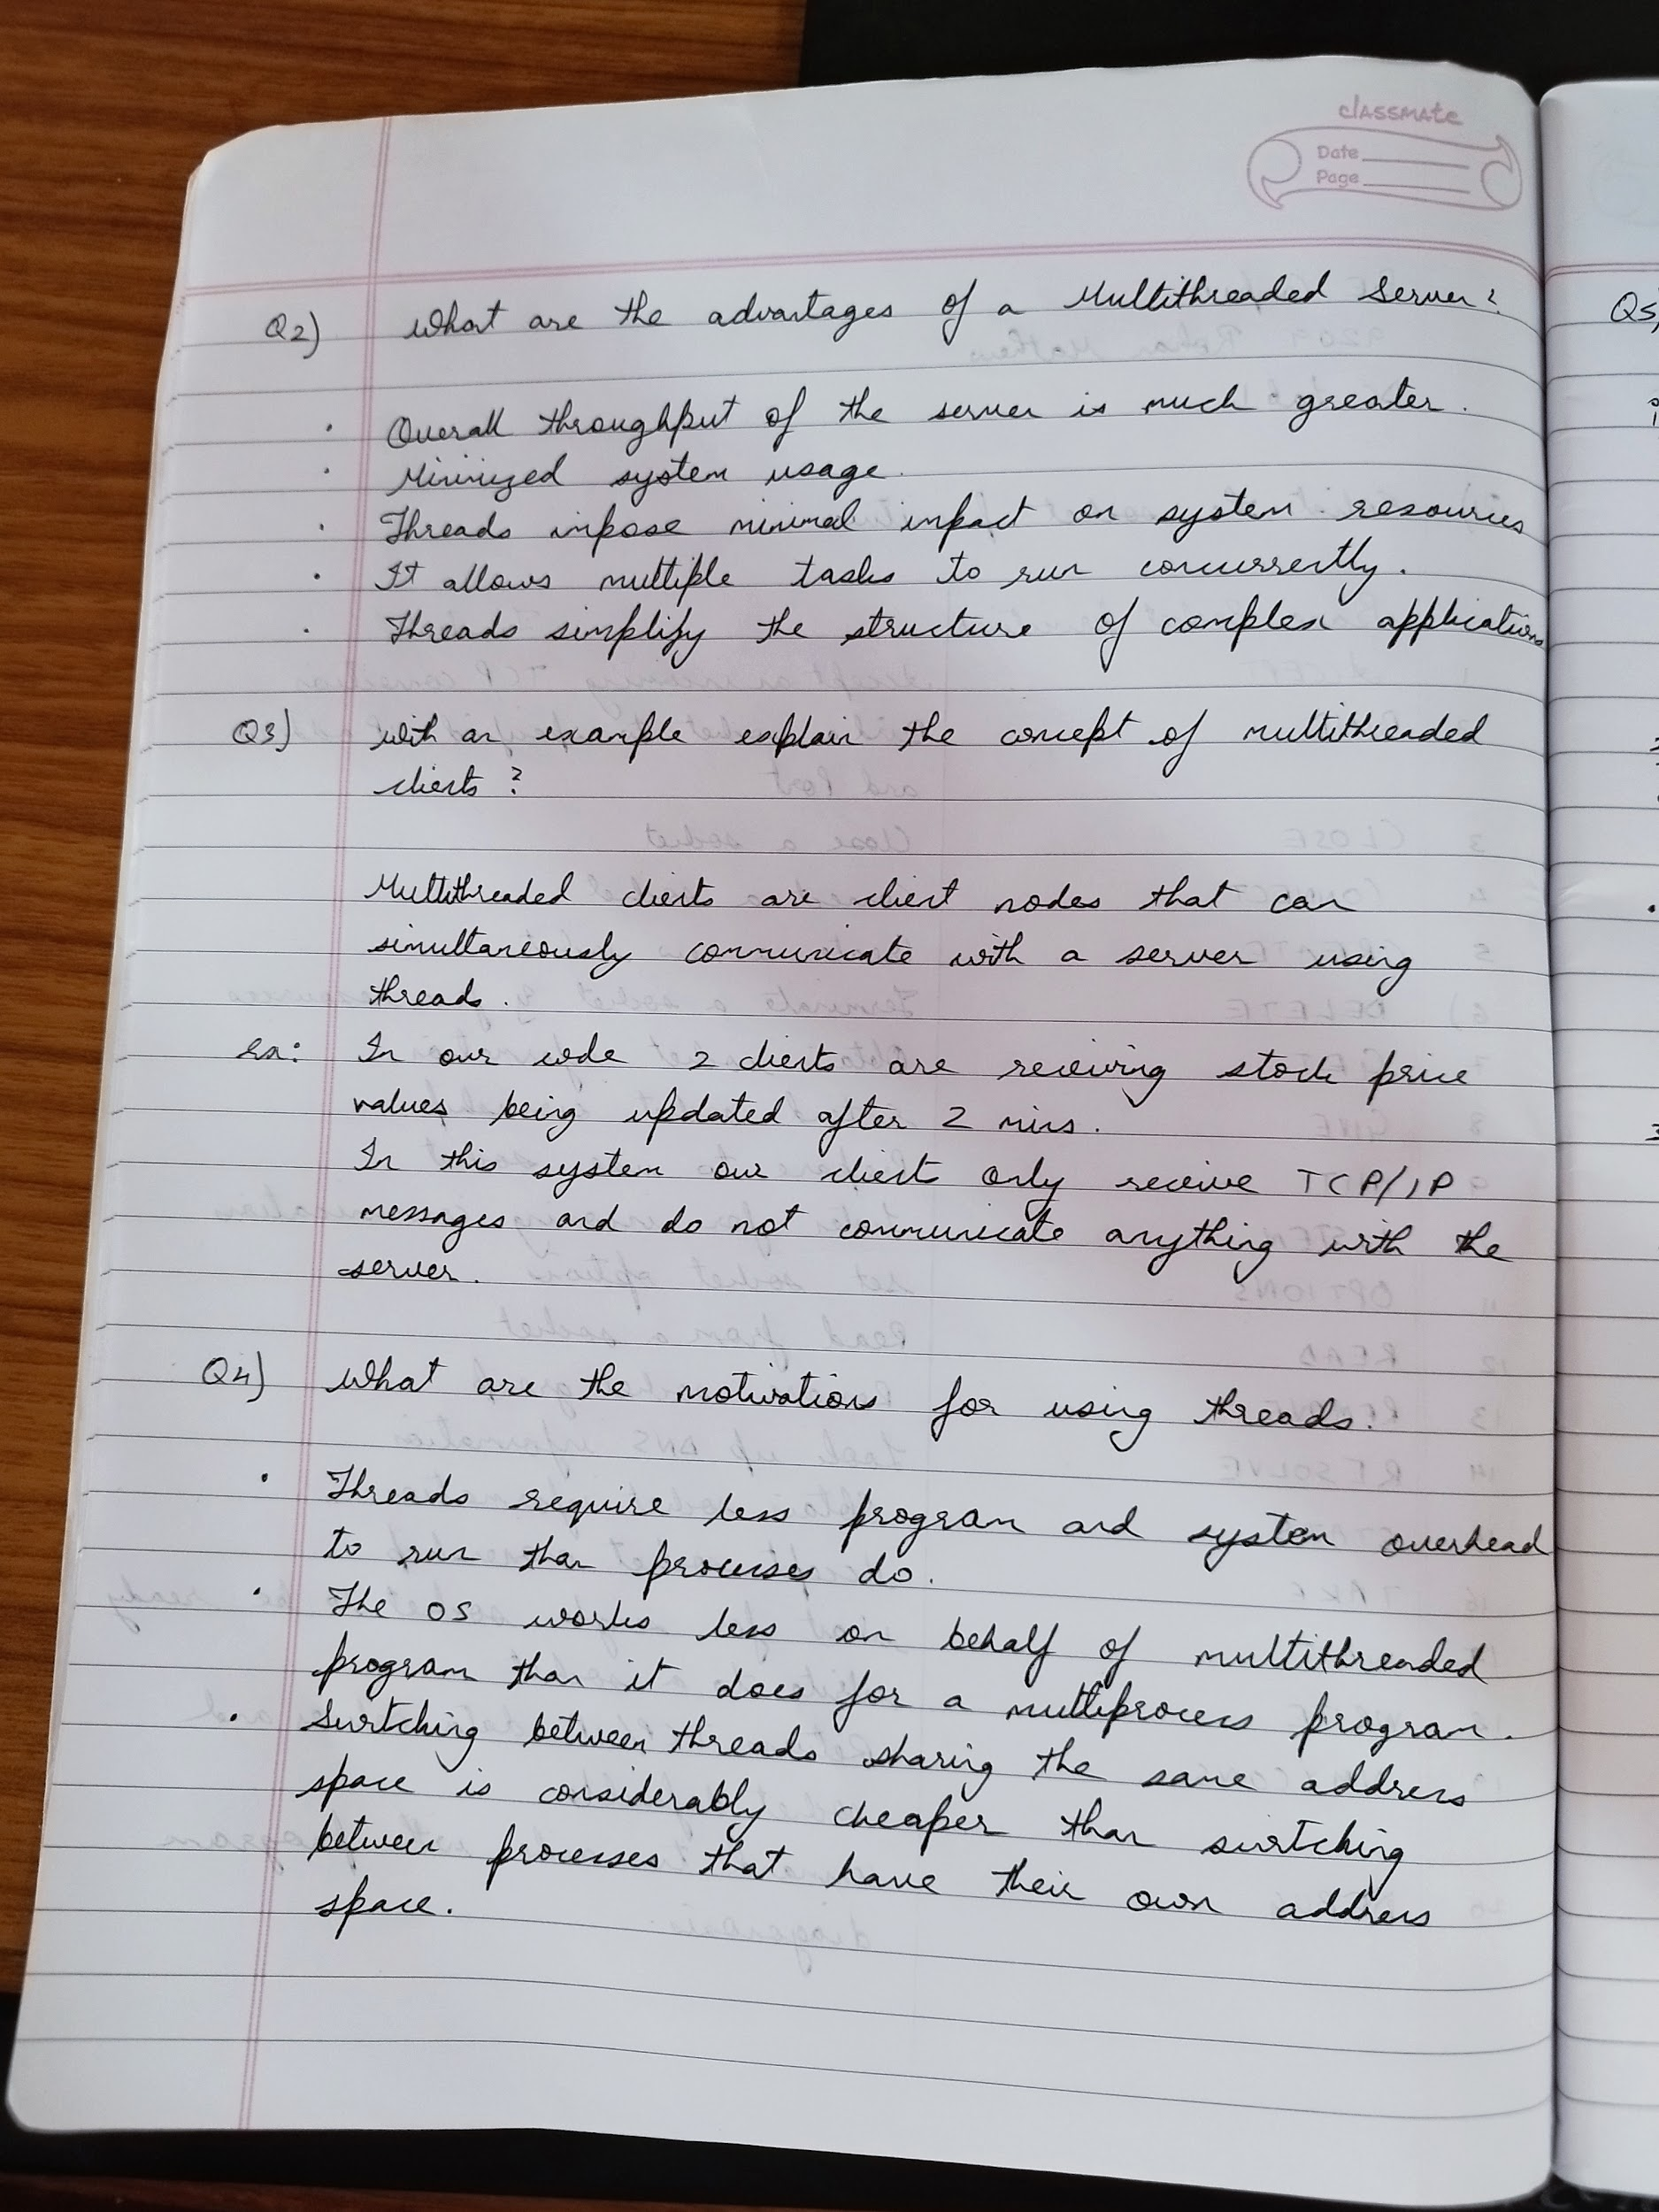 classmate
Date
Page
Q2) What are the advantages of a Multithreaded Server?
· Overall throughput of the server is much greater.
· Minimized system usage.
· Threads impose minimal impact on system resources
· It allows multiple tasks to run concurrently.
· Threads simplify the structure of complex applications
Q3) With an example explain the concept of multithreaded
clients?
Multithreaded clients are client nodes that can
simultaneously communicate with a server using
threads.
ex: In our code 2 clients are receiving stock price
values being updated after 2 mins.
In this system our client only receive TCP/IP
messages and do not communicate anything with the
server.
Q4) What are the motivations for using threads.
· Threads require less program and system overhead
to run than processes do.
· The OS works less on behalf of multithreaded
program than it does for a multiprocess program.
· Switching between threads sharing the same address
space is considerably cheaper than switching
between processes that have their own address
space.
Q5)